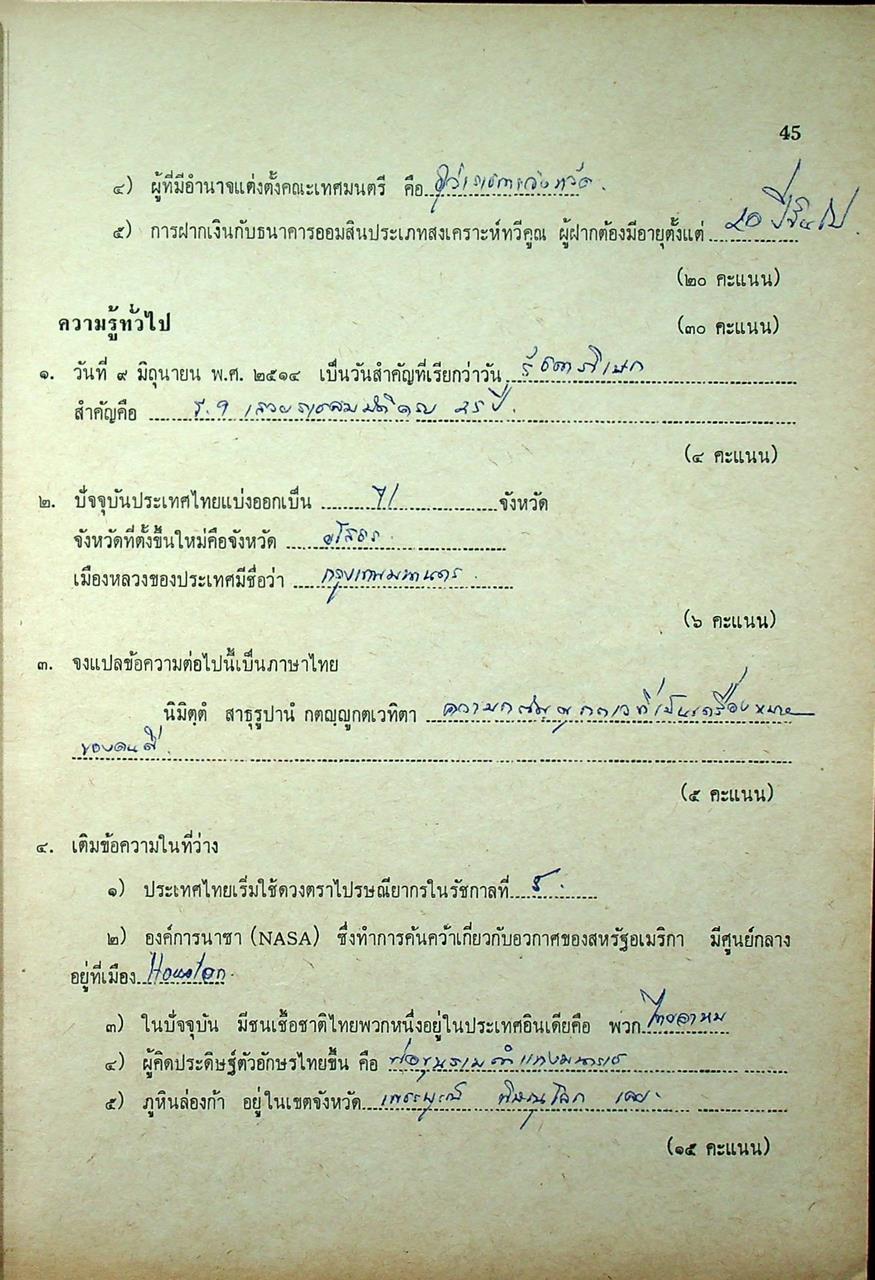 45
๔) ผู้ที่มีอำนาจแต่งตั้งคณะเทศมนตรี คือ ผู้ว่าราชการจังหวัด.
๕) การฝากเงินกับธนาคารออมสินประเภทสงเคราะห์ทวีคูณ ผู้ฝากต้องมีอายุตั้งแต่ ๒๐ ปีขึ้นไป.
(๒๐ คะแนน)
ความรู้ทั่วไป (๓๐ คะแนน)
๑. วันที่ ๙ มิถุนายน พ.ศ. ๒๕๑๔ เป็นวันสำคัญที่เรียกว่าวัน รัชดาภิเษก
สำคัญคือ ร.๙ เสวยราชสมบัติครบ ๒๕ ปี.
(๔ คะแนน)
๒. ปัจจุบันประเทศไทยแบ่งออกเป็น ๗๑ จังหวัด
จังหวัดที่ตั้งขึ้นใหม่คือจังหวัด ยโสธร.
เมืองหลวงของประเทศมีชื่อว่า กรุงเทพมหานคร.
(๖ คะแนน)
๓. จงแปลข้อความต่อไปนี้เป็นภาษาไทย
นิมิตฺตํ สาธุรูปานํ กตญฺญูกตเวทิตา ความกตัญญูกตเวทีเป็นเครื่องหมาย
ของคนดี.
(๕ คะแนน)
๔. เติมข้อความในที่ว่าง
๑) ประเทศไทยเริ่มใช้ดวงตราไปรษณียากรในรัชกาลที่ ๕.
๒) องค์การนาซา (NASA) ซึ่งทำการค้นคว้าเกี่ยวกับอวกาศของสหรัฐอเมริกา มีศูนย์กลาง
อยู่ที่เมือง Houston.
๓) ในปัจจุบัน มีชนเชื้อชาติไทยพวกหนึ่งอยู่ในประเทศอินเดียคือ พวก ไทยอาหม
๔) ผู้คิดประดิษฐ์ตัวอักษรไทยขึ้น คือ พ่อขุนรามคำแหงมหาราช
๕) ภูหินล่องก้า อยู่ในเขตจังหวัด เพชรบูรณ์ พิษณุโลก เลย.
(๑๕ คะแนน)